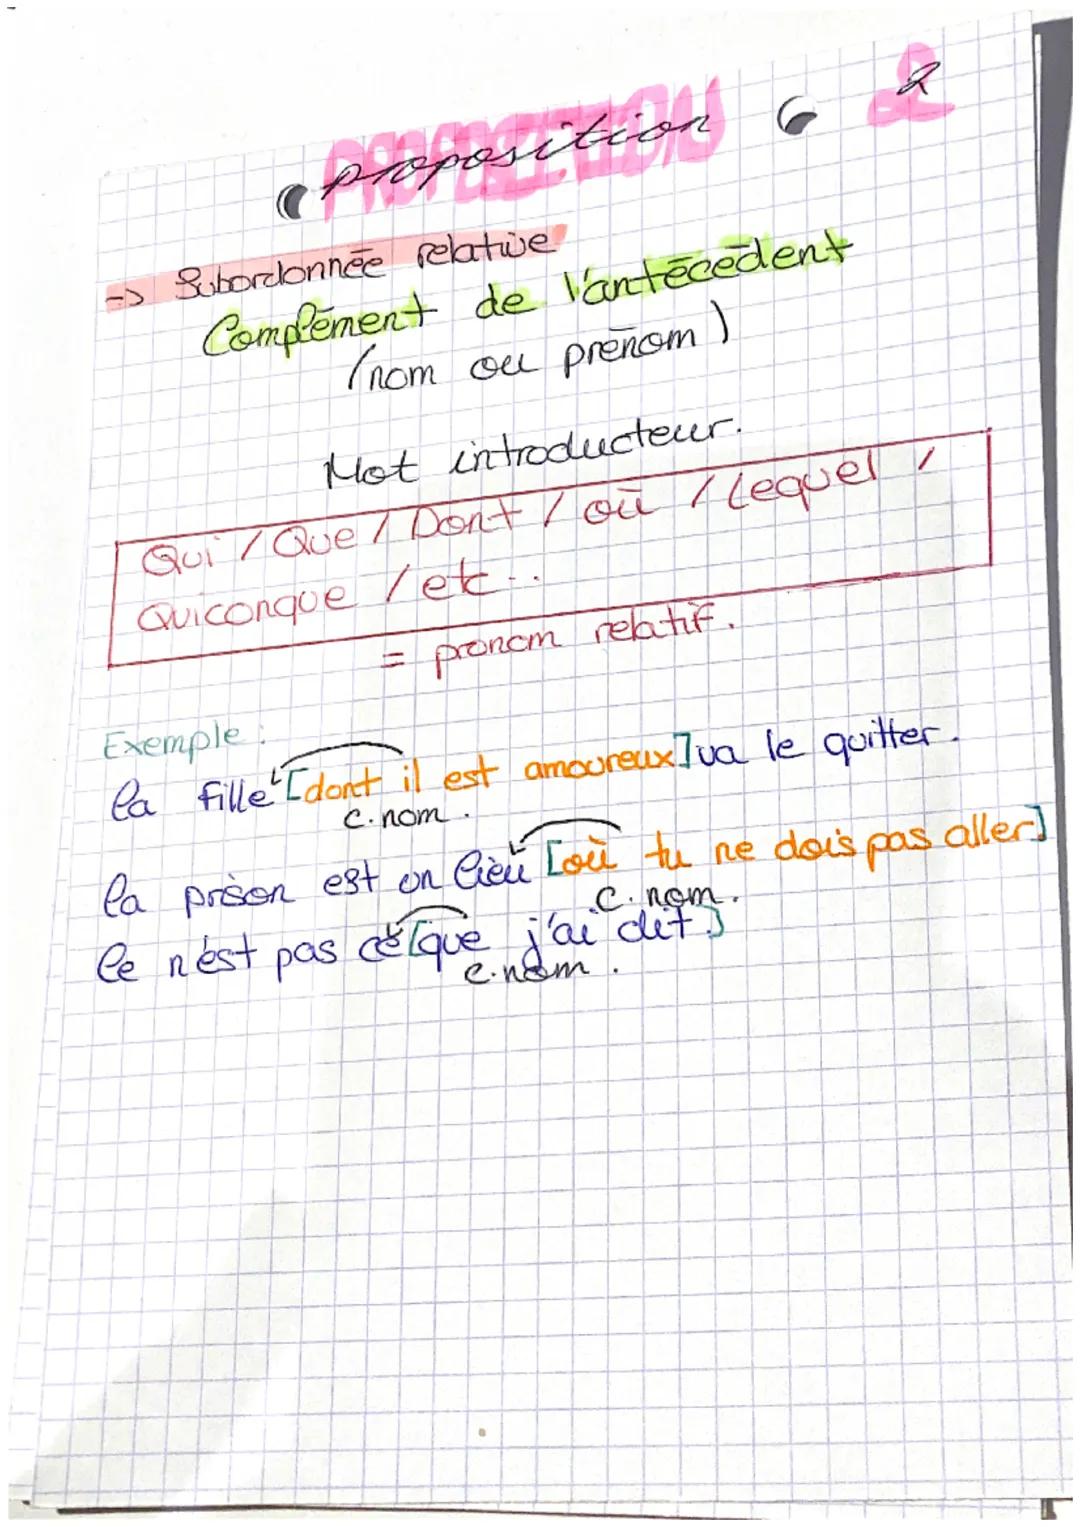 proposition 2
-> Subordonnée relative
Complément de l'antécédent
(nom ou prénom)
Mot introducteur.
Qui / Que / Dont / où / Lequel /
Quiconque / etc..
= pronom relatif.
Exemple :
la fille [dont il est amoureux] va le quitter.
c. nom.
la prison est un lieu [où tu ne dois pas aller]
c. nom.
Ce n'est pas ce [que j'ai dit.]
c. nom.